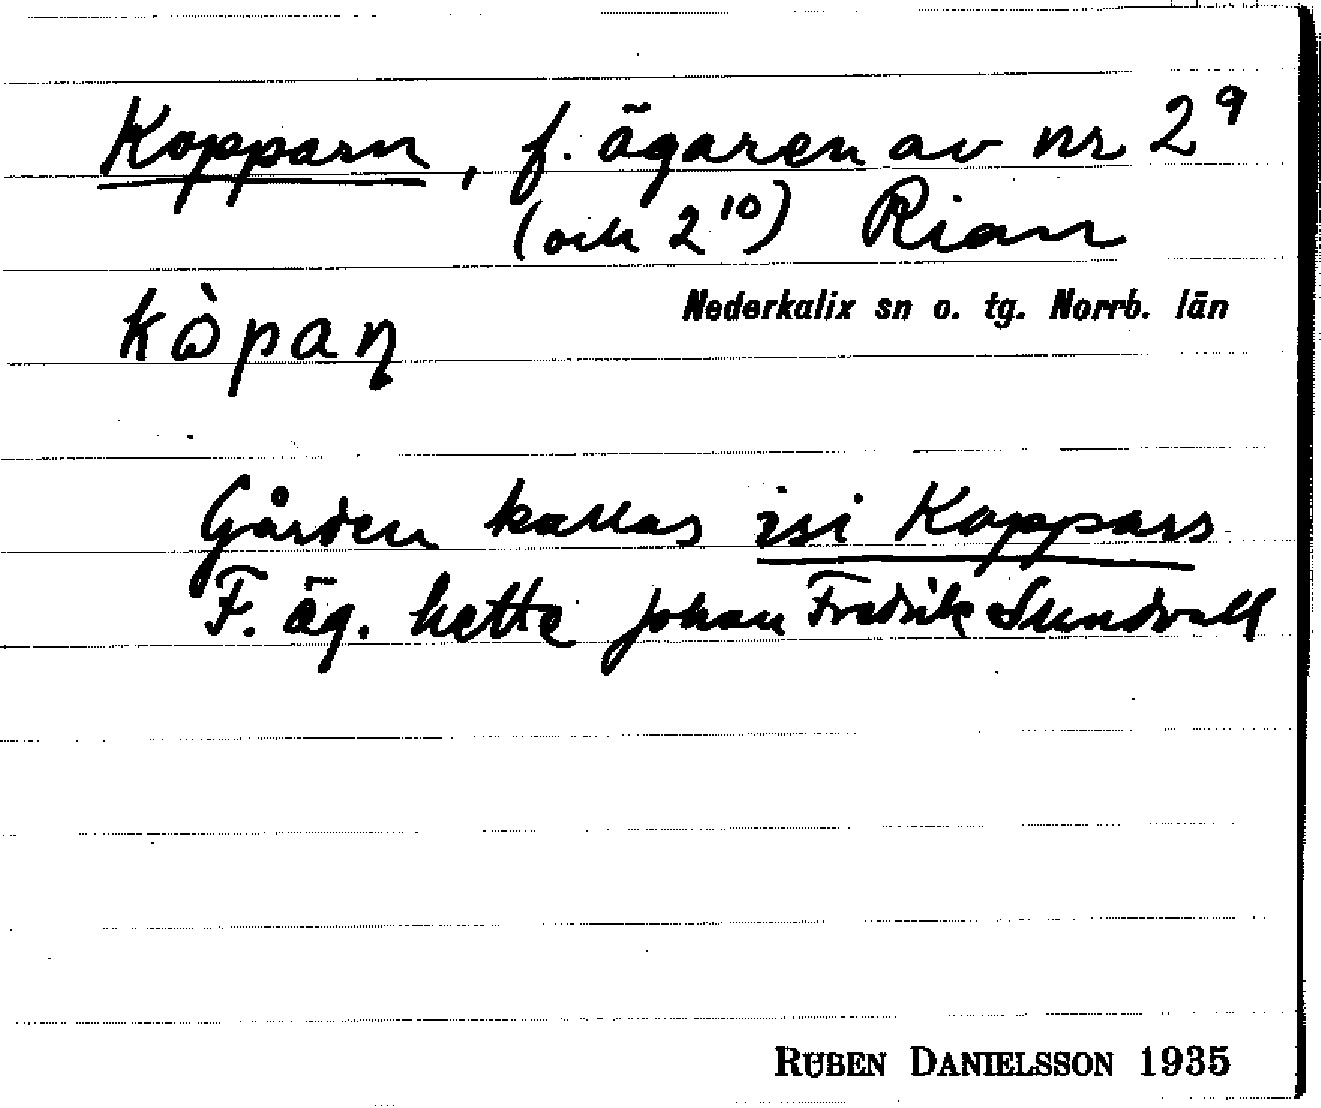 Kopparn, f. ägaren av nr 2⁹
(och 2¹⁰) Rian
Nederkalix sn o. tg. Norrb. län
kòpaɳ
Gården kallas isi Koppars
F. äg. hette Johan Fredrik Sundvall
RUBEN DANIELSSON 1935